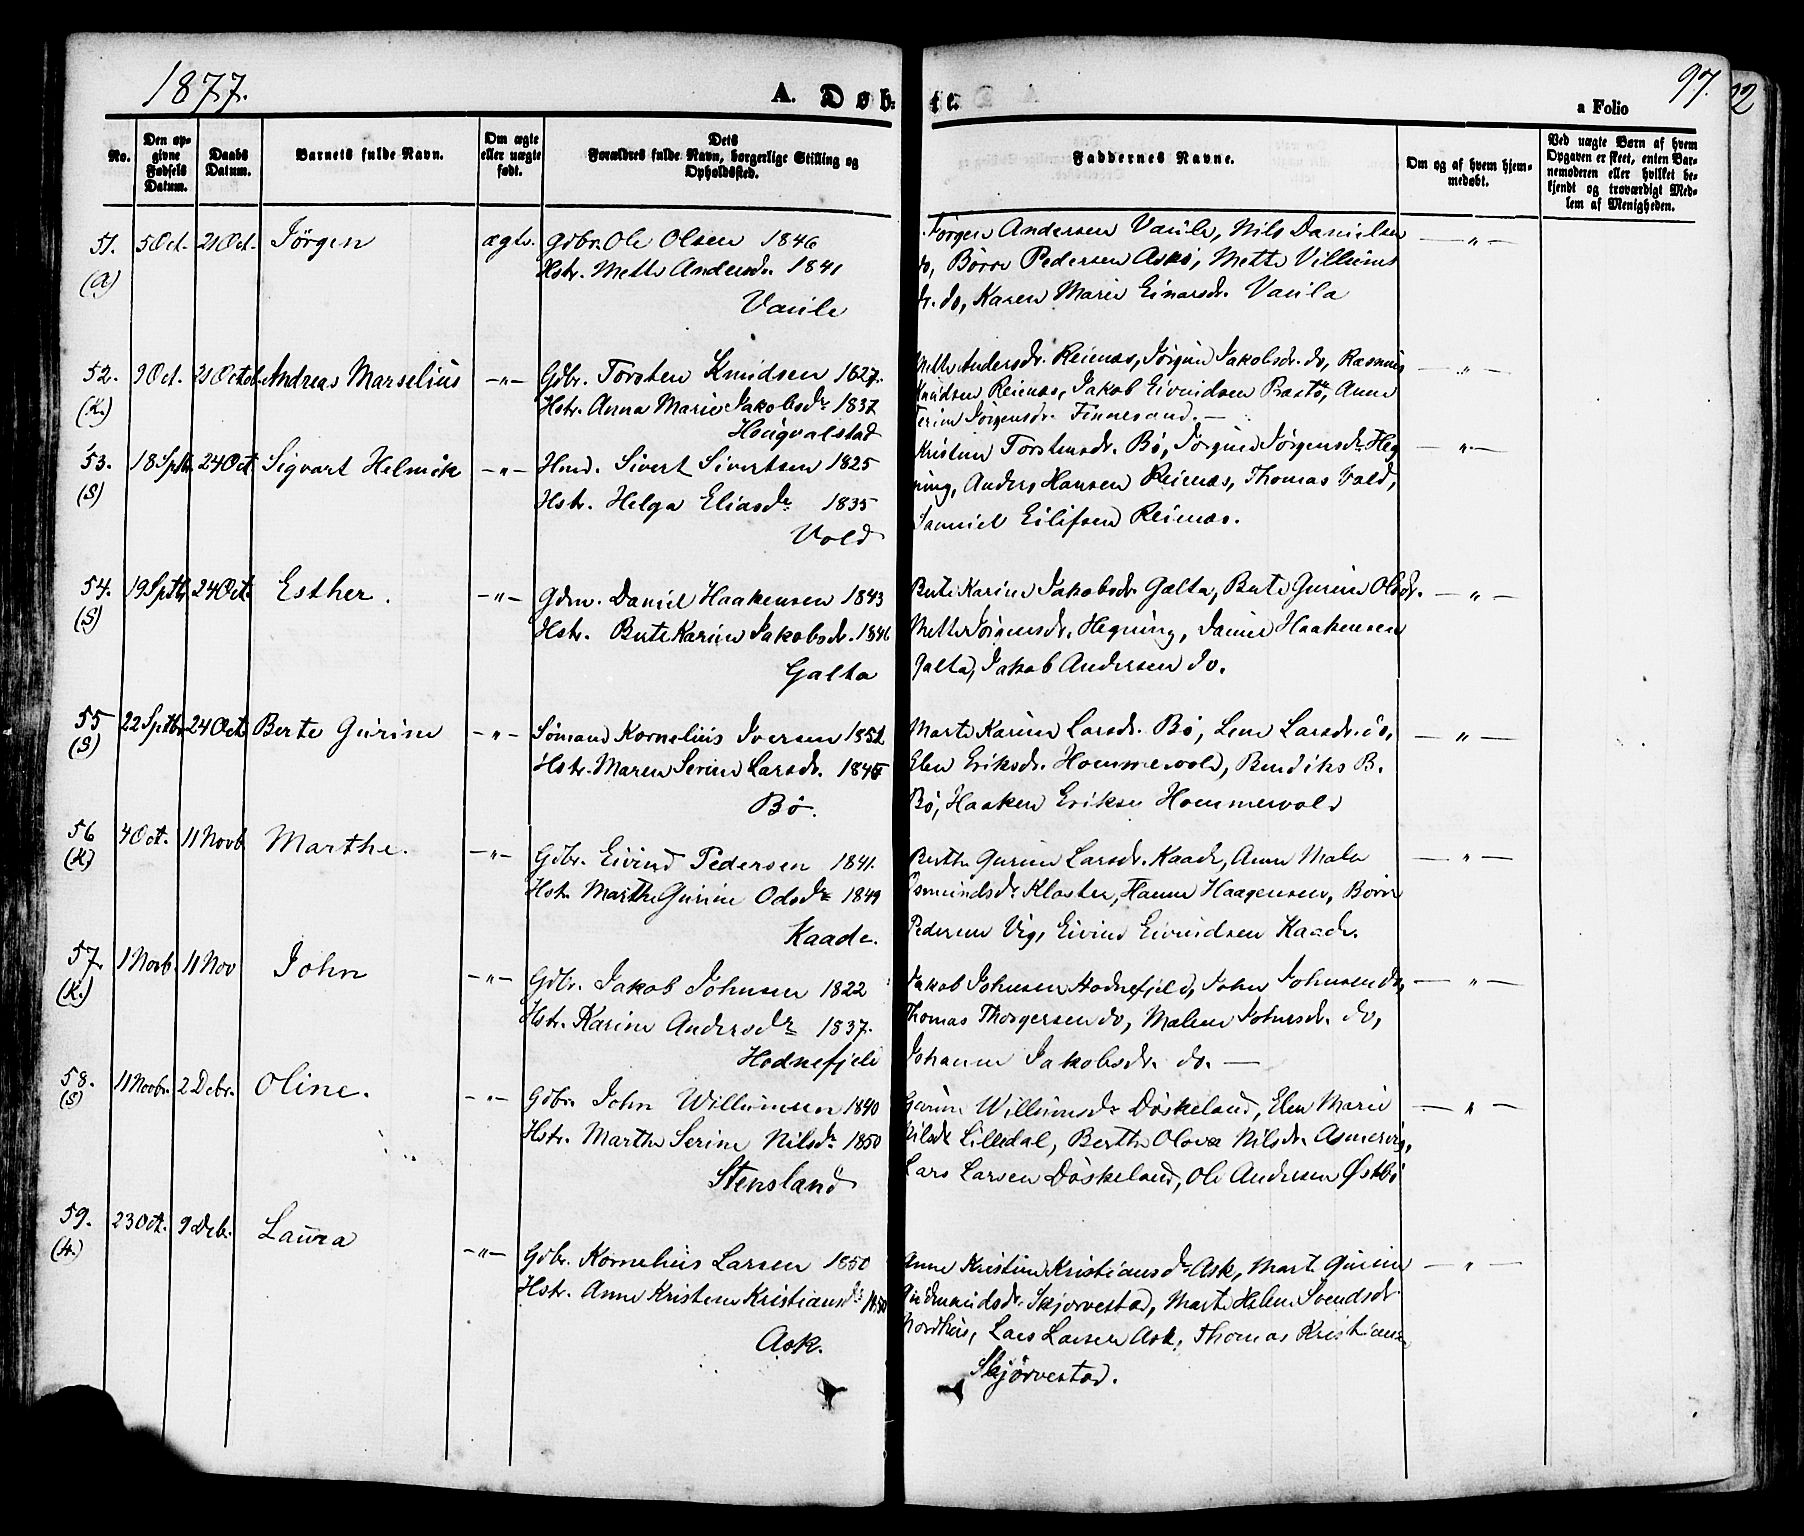 1877.
A. Døb-
te.
a Folio
97.
No.
Den op-
givne
Fødsels
Datum.
Daabs
Datum.
Barnets fulde Navn.
Om ægte
eller uægte
født.
Dets
Forældres fulde Navn, borgerlige Stilling og
Opholdssted.
Faddernes Navne.
Om og af hvem hjem-
medøbt.
Ved uægte Børn af hvem
Opgaven er skeet, enten Bar-
nemoderen eller hvilket be-
kjendt og troværdigt Med-
lem af Menigheden.
51. 5 Oct. 21 Oct. Jörgen ægte. Gdbr. Ole Olsen 1846
(A) Hstr. Mette Andersdr. 1841
Vaule
Jörgen Andersen Vaule, Nils Danielsen — " —
do, Börre Pedersen Askö, Mette Villums
dr. do, Karen Marie Einarsdr. Vaula
52. 9 Oct. 21 Octob. Andreas Marselius — " — Gdbr. Torsten Knudsen 1827.
(K.) Hstr. Anna Marie Jakobsdr 1837
Hougvalstad
Mette Andersdr. Reienæs, Jörgine Jakobsdr. do, Rasmus — " —
Knudsen Reienæs, Jakob Eivindsen Præstö, Anne
Serine Jörgensdr. Finnesand. —
53. 18 Sptbr. 24 Oct Sigvart Helmik — " — Hmd. Sivert Sivertsen 1825
(S) Hstr. Helga Eliasdr 1835
Vold
Kristine Torstensdr. Bö, Jörgine Jörgensdr Heg — " —
ning, Anders Hansen Reienæs, Thomas Vold,
Samuel Eilifsen Reienæs.
54. 19 Sptbr 24 Oct. Esther. — " — Gdm. Daniel Haakensen 1843
(S) Hstr. Berte Karine Jakobsdr. 1846
Galta
Berte Karine Jakobsdr. Galta, Berte Gurine Olsdr. — " —
Mette Jörgensdr. Hegning, Daniel Haakensen
Galta, Jakob Andersen do.
55 22 Sptbr 24 Oct Berte Gurine — " — Sömand Kornelius Iversen 1852
(S) Hstr. Maren Serine Larsdr. 1845
Bö.
Marte Karine Larsdr. Bö, Lene Larsdr. do, — " —
Elen Eriksdr. Hommevold, Bendiks B.
Bö, Haaken Eriksen Hommevold
56 4 Oct. 11 Novb Marthe. — " — Gdbr. Eivind Pedersen 1841.
(K) Hstr. Marthe Gurine Odsdr 1849
Kaade.
Berthe Gurine Larsdr. Kaade, Anne Male — " —
Osmundsdr Kloster, Hanne Haagensen, Börre
Pedersen Vig, Eivind Eivindsen Kaade.
57. 1 Novb. 11 Nov John — " — Gdbr. Jakob Johnsen 1822
(K.) Hstr. Karine Andersdr 1837.
Hodnefjeld
Jakob Johnsen Hodnefjeld, John Johnsen do, — " —
Thomas Thorgersen do, Malene Johnsdr. do,
Johanne Jakobsdr. do. —
58. 11 Novbr. 2 Debr. Oline. — " — Gdbr. John Willumsen 1840
(S) Hstr. Marthe Serine Nilsdr 1850
Stensland
Gurine Willumsdr Döskeland, Elen Marie — " —
Nilsdr Lilledal, Berthe Olava Nilsdr. Asmervig,
Lars Larsen Döskeland, Ole Andersen Østbö
59. 23 Oct. 9 Deb. Laura — " — Gdbr. Kornelius Larsen 1850
(A.) Hstr. Anne Kristine Kristiansdr 1850
Ask.
Anne Kristine Kristiansdr Ask, Marte Gurine — " —
Gudmundsdr. Skjörvestad, Marte Helene Svendsdr
Nordhus, Lars Larsen Ask, Thomas Kristiansen
Skjörvestad.